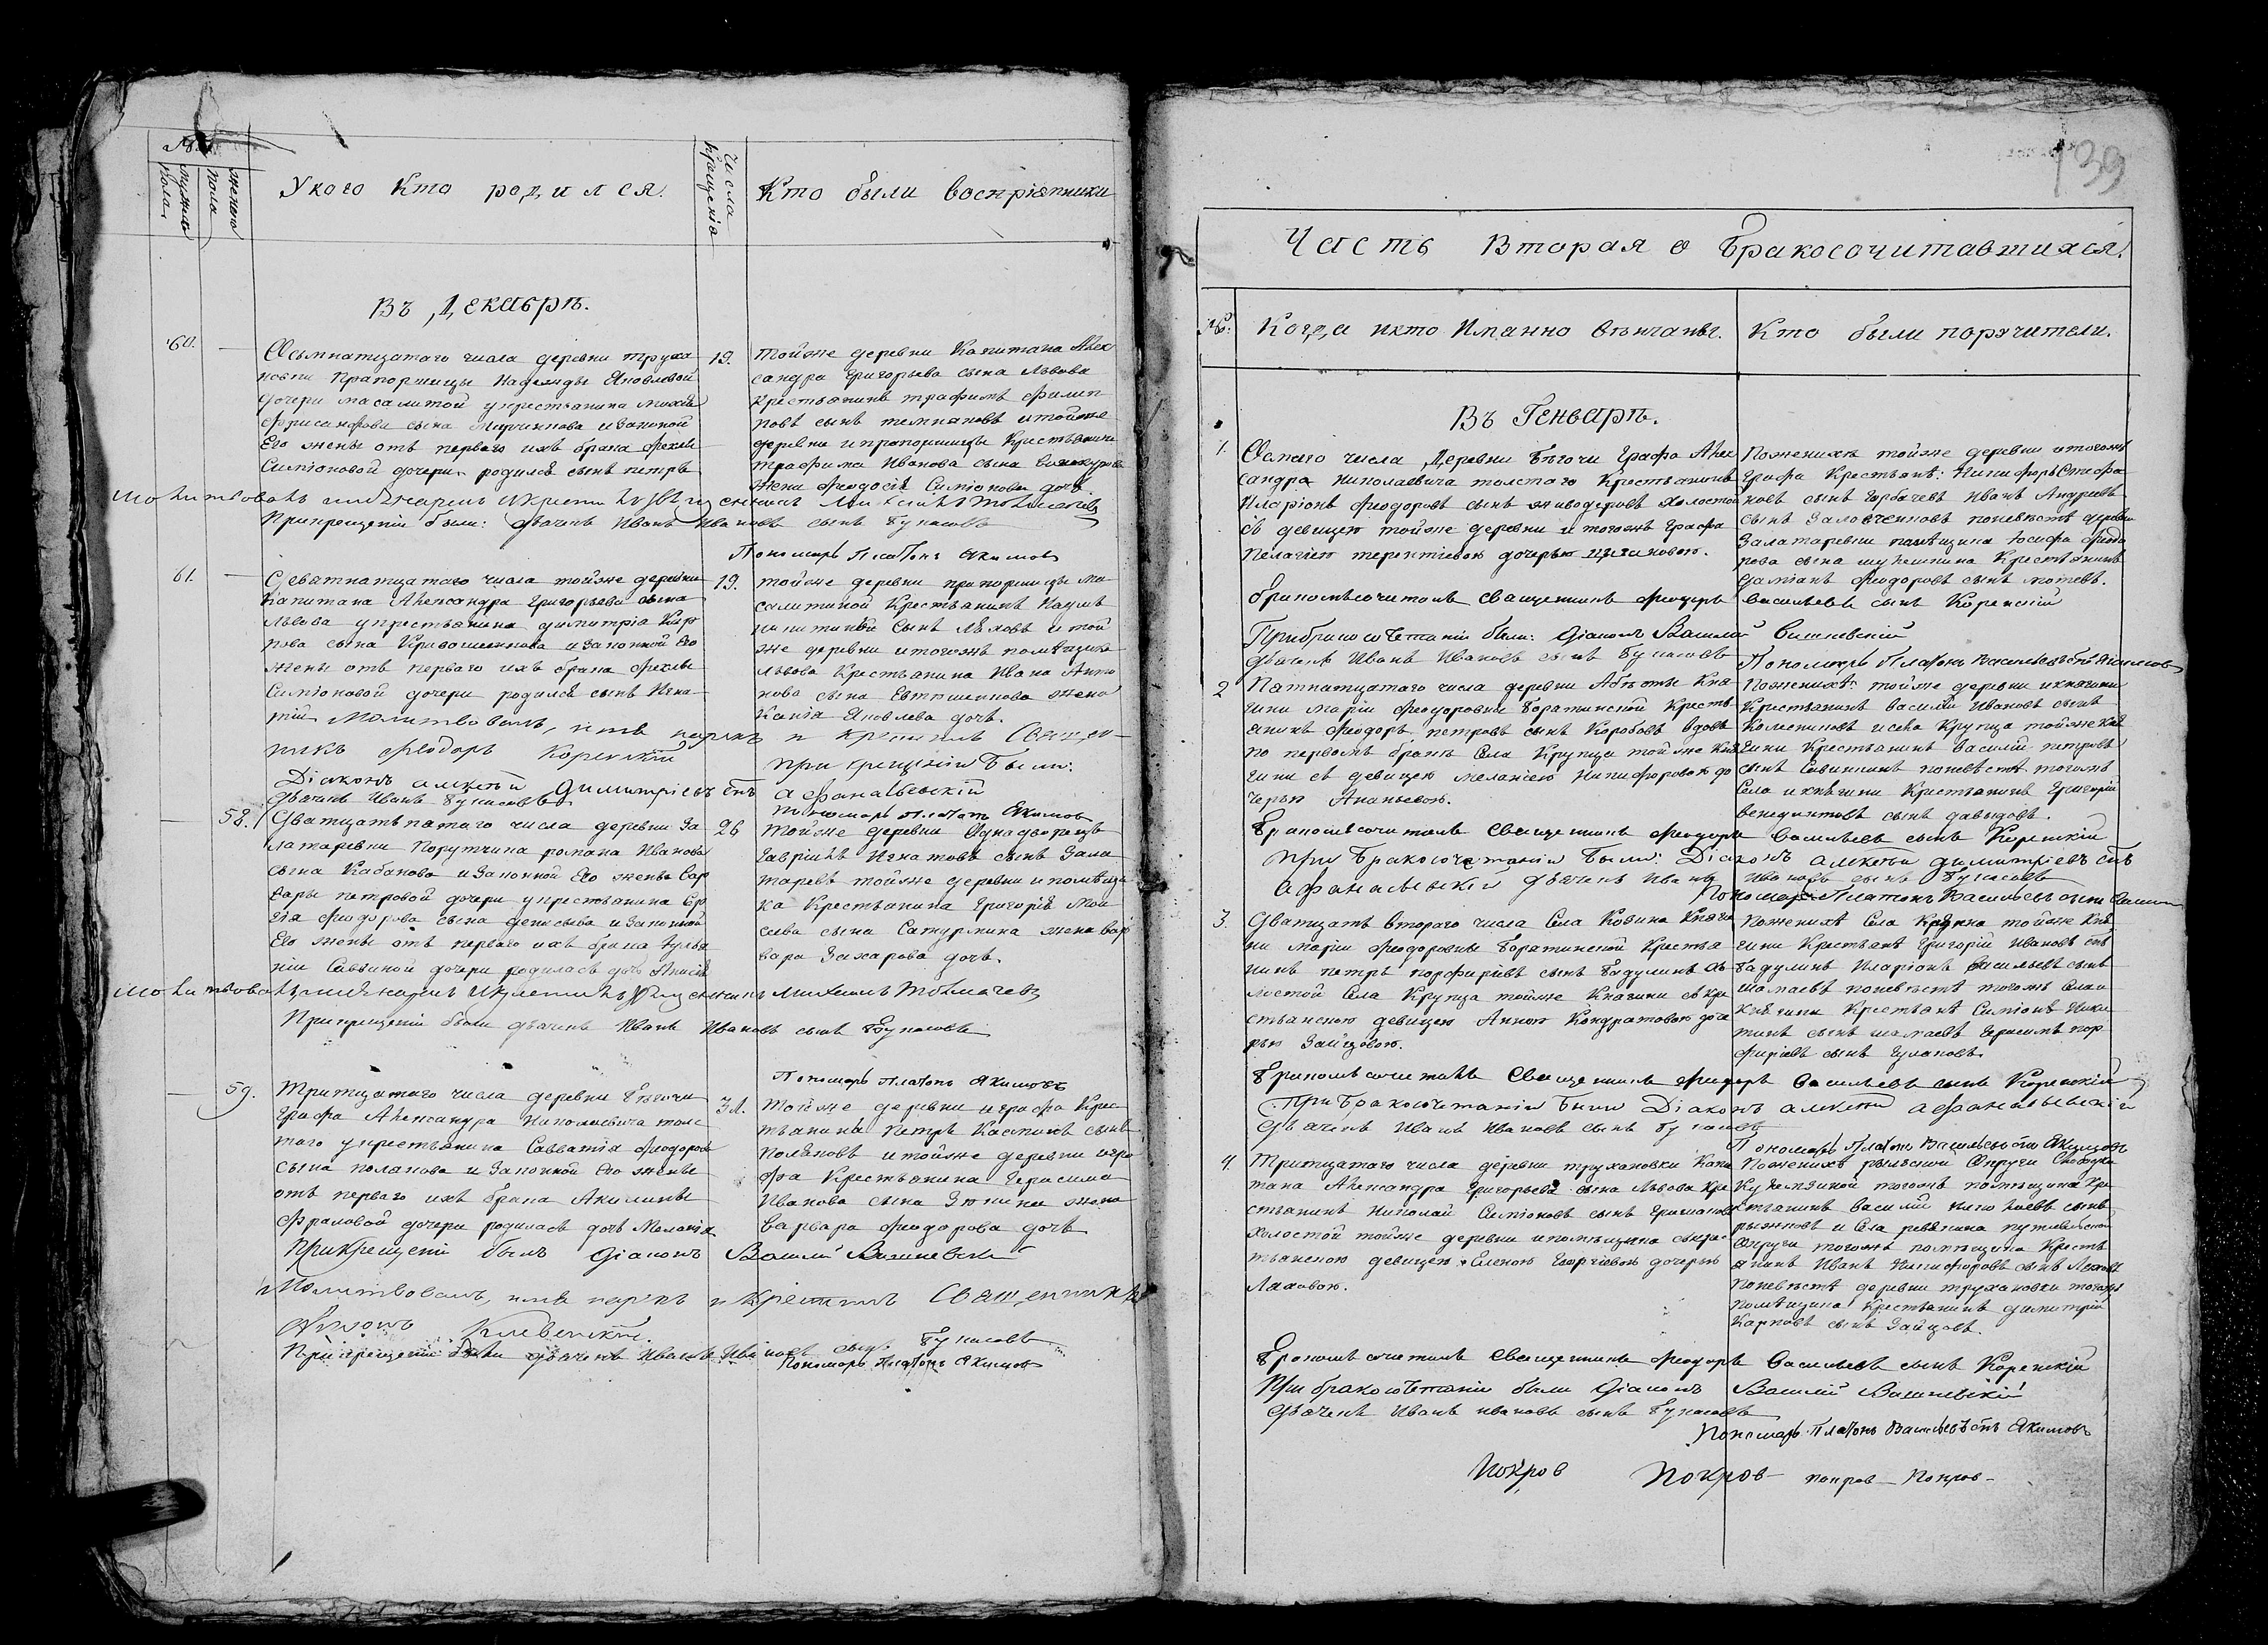 №
мужеска пола
женска пола
У кого кто родился.
Числа крещенія
Кто были воспріятники
Въ Декабрѣ.
60.
Осьмнатцатого числа деревни Труха
новки Прапорщицы Надежды Яковлевой
дочери Масалитой у крестьянина
сына и законной
Его жены отъ первого ихъ брака Феклы
Симіоновой дочери родился сынъ петръ
19.
тойже деревни Капитана Алек
сандра Григорьева сына Львова
крестьянинъ трафимъ филип
повъ сынъ итойже
деревни и прапорщицы Крестьянина
трафима Иванова сына
жена феодосія Симіонова дочь
Прикрещеніи были: дьячекъ Иванъ Ивановъ сынъ Букасовъ
Пономарь Платонъ Якимовъ
61.
Девятнатцатого числа тойже деревни
Капитана Александра Григорьева сына
Львова у крестьянина димитрія Кар
пова сына и законной Его
жены отъ первого ихъ брака феклы
Симіоновой дочери родился сынъ Игна
тій
19.
тойже деревни прапорщицы Ма
салитиной Крестьянинъ Наумъ
никитинъ сынъ Ляховъ и той
же деревни итогожъ помѣщика
Львова Крестьянина Ивана Анто
нова сына жена
Яковлева дочь.
Молитвовалъ, имя нарекъ и крестилъ Священ-
никъ Феодоръ Коренскій
при крещеніи были:
Діаконъ Алексѣй Димитріевъ снъ Афанасьевскій
дьячекъ Иванъ Букасовъ
Пономарь Платонъ Якимовъ
58.
Дватцать пятаго числа деревни За
латаревки Порутчика романа Иванова
сына Кабанова и законной Его жены Вар
вары петровой дочери у крестьянина
феодорова сына и законной
Его жены отъ первого ихъ брака Улья
ніи Савиной дочери родилась дочь Анисія
26
тойже деревни Однодворецъ
Гавріилъ Игнатовъ сынъ Зала
таревъ тойже деревни и помѣщи
ка Крестьянина Григорія Мои
сѣева сына жена вар
вара Захарова дочь.
Прикрещеніи были дьячекъ Иванъ Ивановъ сынъ Букасовъ
Пономарь Платонъ Якимовъ
59.
Тритцатого числа деревни Бѣгочи
Графа Александра Николаевича толс
таго у крестьянина Савватія Феодорова
сына полякова и законной Его жены
отъ первого ихъ брака Акилины
Фроловой дочери родилась дочь Меланія
31.
Тойже деревни и графа Крес
тьянина Петръ сынъ
Поляковъ и тойже деревни игра
фа Крестьянина Герасима
Иванова сына Зюкина жена
Варвара Феодорова дочь
Прикрещеніи былъ Діаконъ Василій Вишневскій
Молитвовалъ, имя нарекъ и Крестилъ Священникъ
Симонъ Клевенскій.
При крещеніи были дьячекъ Иванъ Ивановъ сынъ Букасовъ
Пономарь Платонъ Якимовъ
139
Часть Вторая о Бракосочитавшихся.
№
Когда икто Имянно вѣнчаны.
Кто были поручители.
Въ Генварѣ.
1.
Осмаго числа Деревни Бѣгочи Графа Алек
сандра Николаевича толстаго Крестьянинъ
Иларіонъ Феодоровъ сынъ живодеровъ Холостой
съ девицею тойже деревни и тогожъ Графа
Пелагіею терентіевою дочерью
Поженихѣ тойже деревни итогожъ
Графа Крестьяне: Никифоръ Стефа
новъ сынъ Горбачевъ Иванъ Андріевъ
сынъ поневѣстѣ деревни
Залатаревки помѣщика
рова сына Крестьянинъ
даміанъ Феодоровъ сынъ
бракомъ сочиталъ Священникъ Феодоръ Васильевъ сынъ Коренскій
При бракосочетаніи были: Діаконъ Василій Вишневскій
дьячекъ Иванъ Ивановъ сынъ Букасовъ
Пономарь Платонъ Васильевъ снъ Якимовъ
2
Патнатцатого числа деревни Кня
гини Маріи Феодоровны Барятинской Кресть
янинъ Феодоръ петровъ сынъ Коробовъ вдовъ
по первомъ бракѣ Села Крупца тойже Кня
гини съ девицею Меланіею Никифоровою до
черью Ананьевою.
Поженихѣ: тойже деревни икнягини
Крестьянинъ Василій Ивановъ сынъ
Колесниковъ исела Крупца тойже Кня
гини Крестьянинъ Василій петровъ
сынъ поневѣстѣ тогожъ
Села икнягини Крестьянинъ Григорій
сынъ давыдовъ.
Бракомъ сочиталъ Священникъ Феодоръ Васильевъ сынъ Коренскій
при бракосочетаніи были: Діаконъ Алексѣй Димитріевъ снъ
Афанасьевскій дьячекъ Иванъ Ивановъ сынъ Букасовъ
Пономарь Платонъ Васильевъ снъ Якимовъ
3.
Дватцать втораго числа Села Козина Княги
ни Маріи Феодоровны Барятинской Крестья
нинъ петръ порфиріевъ сынъ Бадулинъ хо
лостой Села Крупца тойже Княгини съ кре
стьянскою девицею Анною Кондратовою доче
рью Зайцовою.
Поженихѣ Села Козина тойже Кня
гини Крестьяне Григорій Ивановъ снъ
Бадулинъ Иларіонъ Васильевъ сынъ
Шамаевъ поневѣстѣ тогожъ Села и
Княгини Крестьяне Симіонъ Ники
тинъ сынъ Шамаевъ Герасимъ пор
фиріевъ сынъ
Бракомъ сочиталъ Священникъ Феодоръ Васильевъ сынъ Коренскій
При бракосочетаніи были Діаконъ Алексѣй Афанасьевскій
Дьячекъ Иванъ Ивановъ сынъ Букасовъ
Пономарь Платонъ Васильевъ снъ Якимовъ
4.
Тритцатого числа деревни трухановки Капи
тана Александра Григорьева сына Львова Кре
стьянинъ Николай Симіоновъ сынъ
холостой тойже деревни ипомѣщика съ крес
тьянскою девицею Еленою Георгіевою дочерью
Ляховою.
Поженихѣ рыльской Округи Слободки
тогожъ помѣщика Кре
стьянинъ Василій сынъ
рыжковъ и Села путивльской
Округи тогожъ помѣщика Кресть
янинъ Иванъ Никифоровъ сынъ Ляховъ
Поневѣстѣ деревни трухановки тогожъ
помѣщика Крестьянинъ димитрій
Карповъ сынъ Зайцовъ.
Бракомъ сочиталъ Священникъ Феодоръ Васильевъ сынъ Коренскій
При бракосочетаніи были Діаконъ Василій Вишневскій
Дьячекъ Иванъ Ивановъ сынъ Букасовъ
Пономарь Платонъ Васильевъ снъ Якимовъ
Покров Покров покров Покров